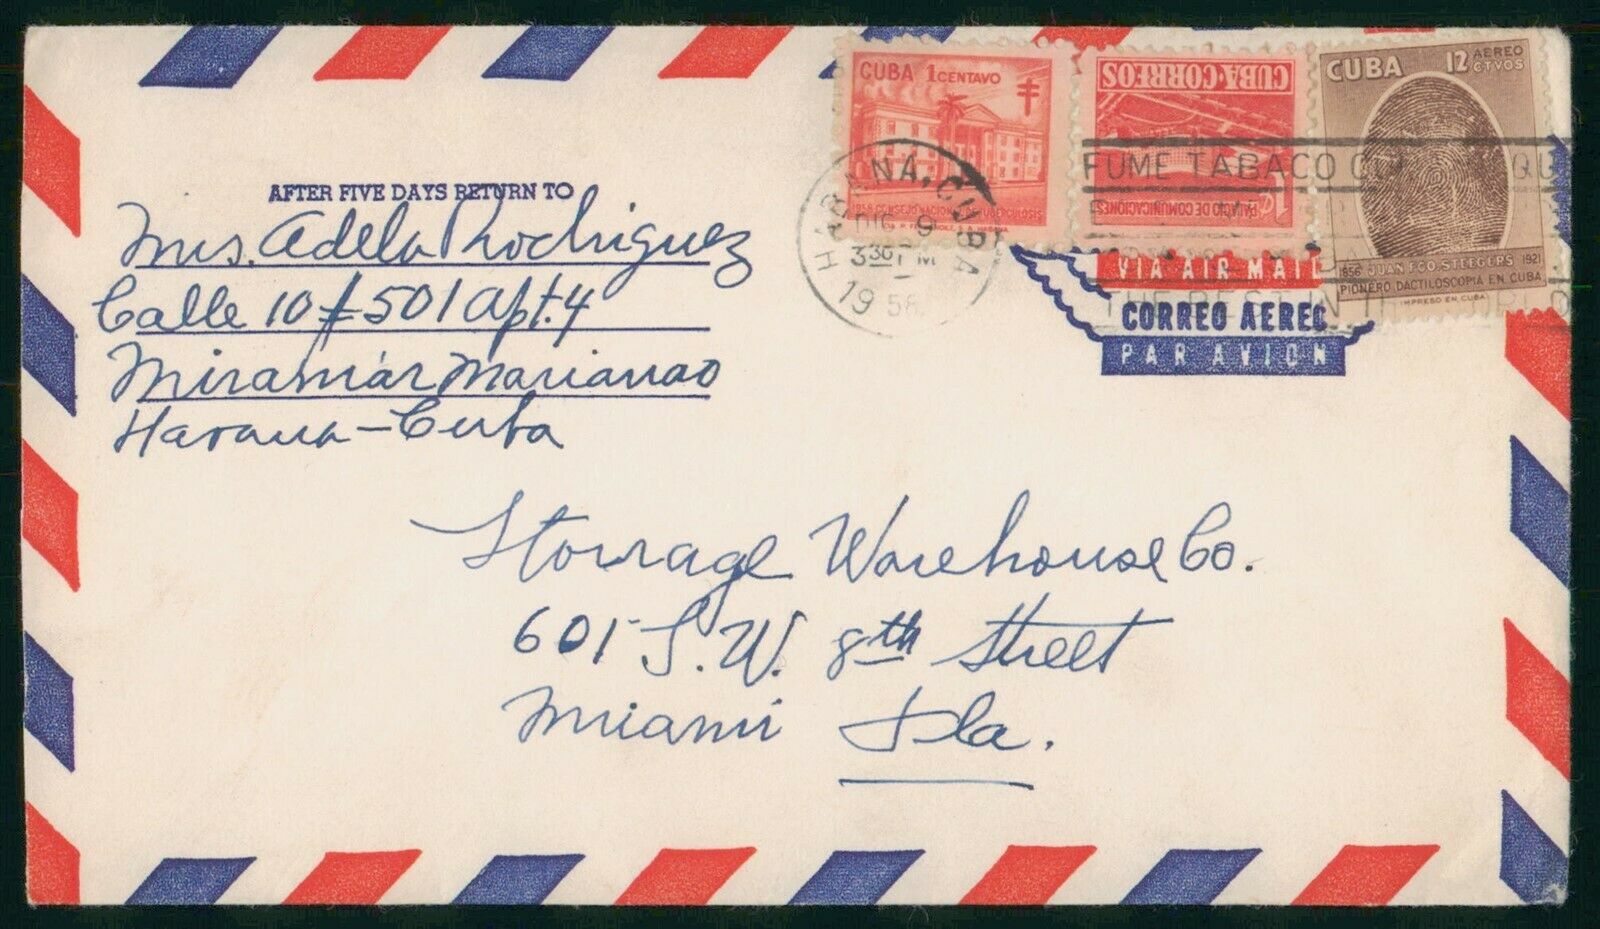 AFTER FIVE DAYS RETURN TO
Mrs. Adela Rodriguez
Calle 10 # 501 Apt. 4
Miramár Marianao
Havana-Cuba
CUBA 1 CENTAVO
1958 CONSEJO NACIONAL TUBERCULOSIS
CUBA·CORREOS
1¢ PALACIO DE COMUNICACIONES
CUBA 12 AEREO
CTVOS
1856 JUAN FCO. STEEGERS 1921
PIONERO DACTILOSCOPIA EN CUBA
IMPRESO EN CUBA
HABANA, CUBA
DIC 9
3 30 PM
1958
FUME TABACO
THE BEST IN THE
VIA AIR MAIL
CORREO AEREO
PAR AVION
Storrage Warehouse Co.
601 S.W. 8th Street
Miami Fla.